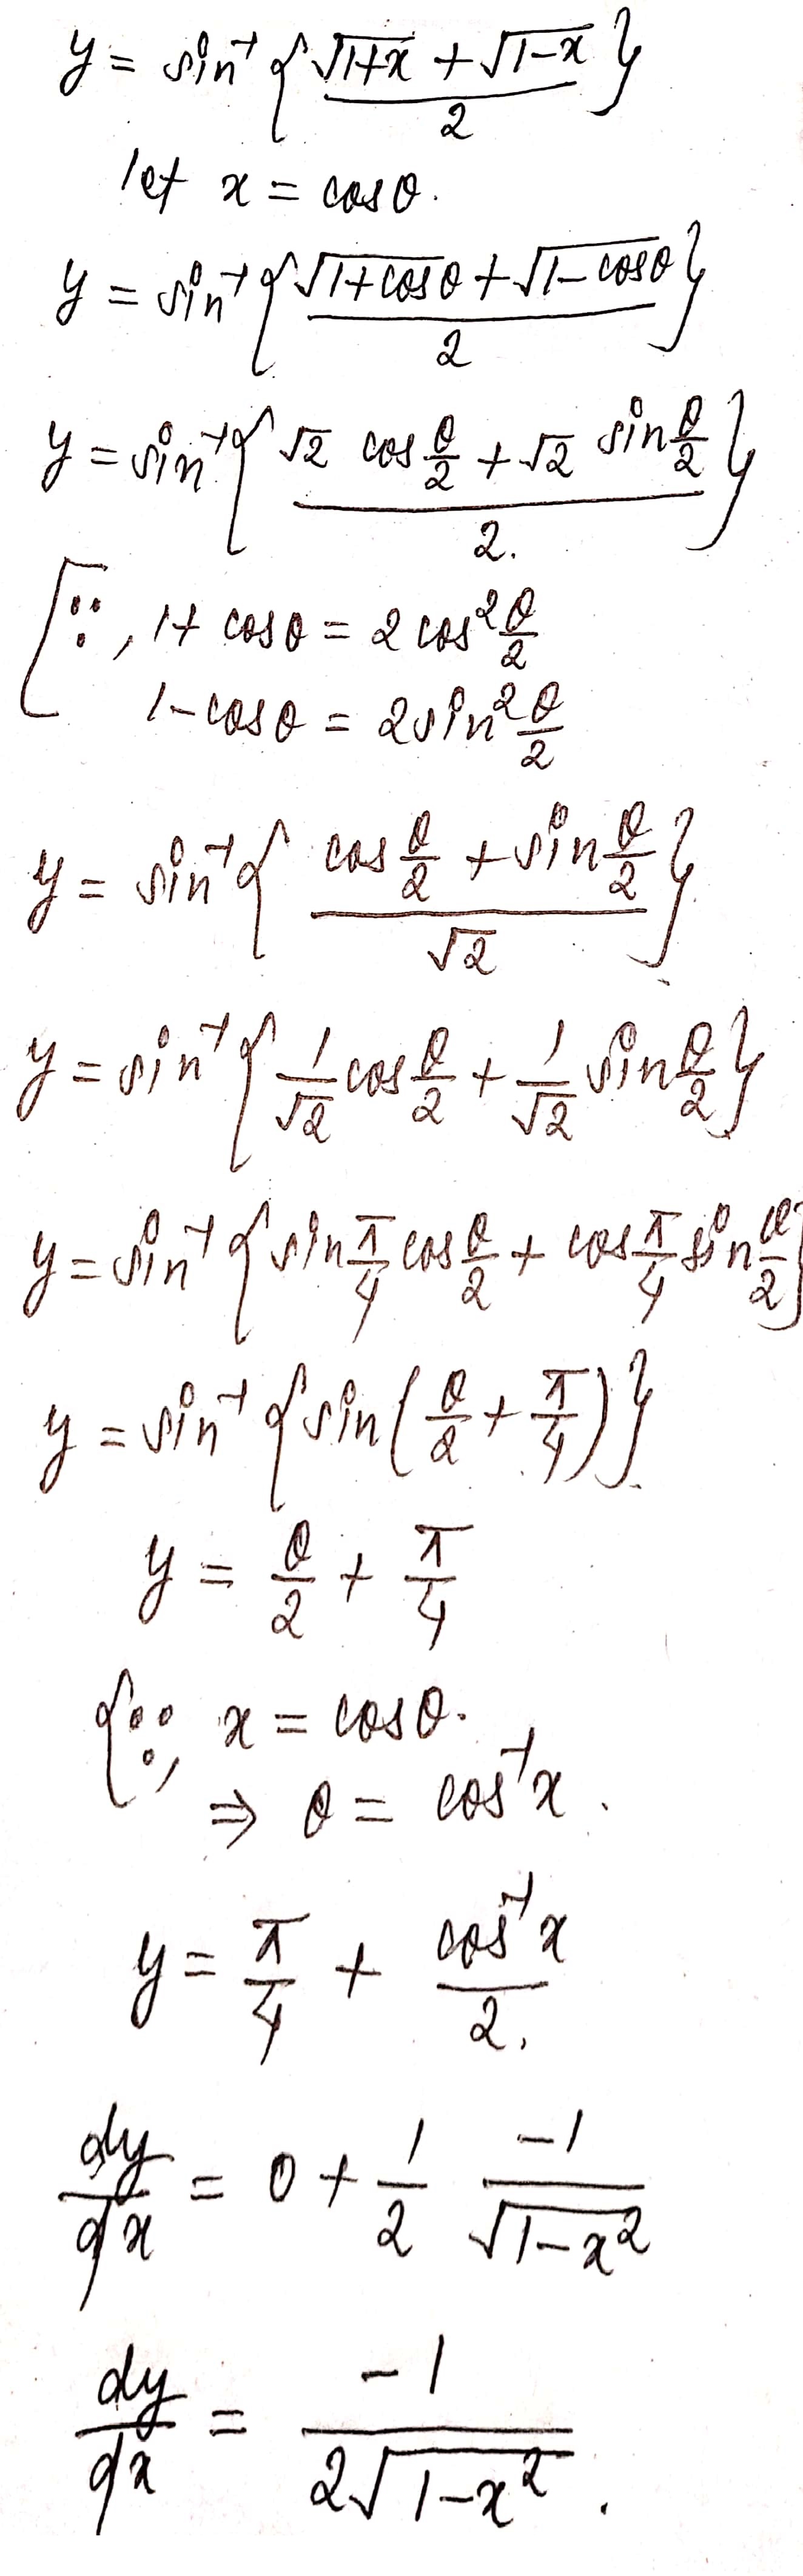 y = sin⁻¹ { (√(1+x) + √(1-x)) / 2 }
let x = cosθ.
y = sin⁻¹ { (√(1+cosθ) + √(1-cosθ)) / 2 }
y = sin⁻¹ { (√2 cos θ/2 + √2 sin θ/2) / 2. }
[∵, 1+ cosθ = 2 cos² θ/2
1-cosθ = 2 sin² θ/2
y = sin⁻¹ { (cos θ/2 + sin θ/2) / √2 }
y = sin⁻¹ { 1/√2 cos θ/2 + 1/√2 sin θ/2 }
y = sin⁻¹ { sin π/4 cos θ/2 + cos π/4 sin θ/2 }
y = sin⁻¹ { sin ( θ/2 + π/4 ) }
y = θ/2 + π/4
{∵, x = cosθ.
⇒ θ = cos⁻¹x .
y = π/4 + cos⁻¹x / 2.
dy/dx = 0 + 1/2 -1/√(1-x²)
dy/dx = -1 / 2√(1-x²) .